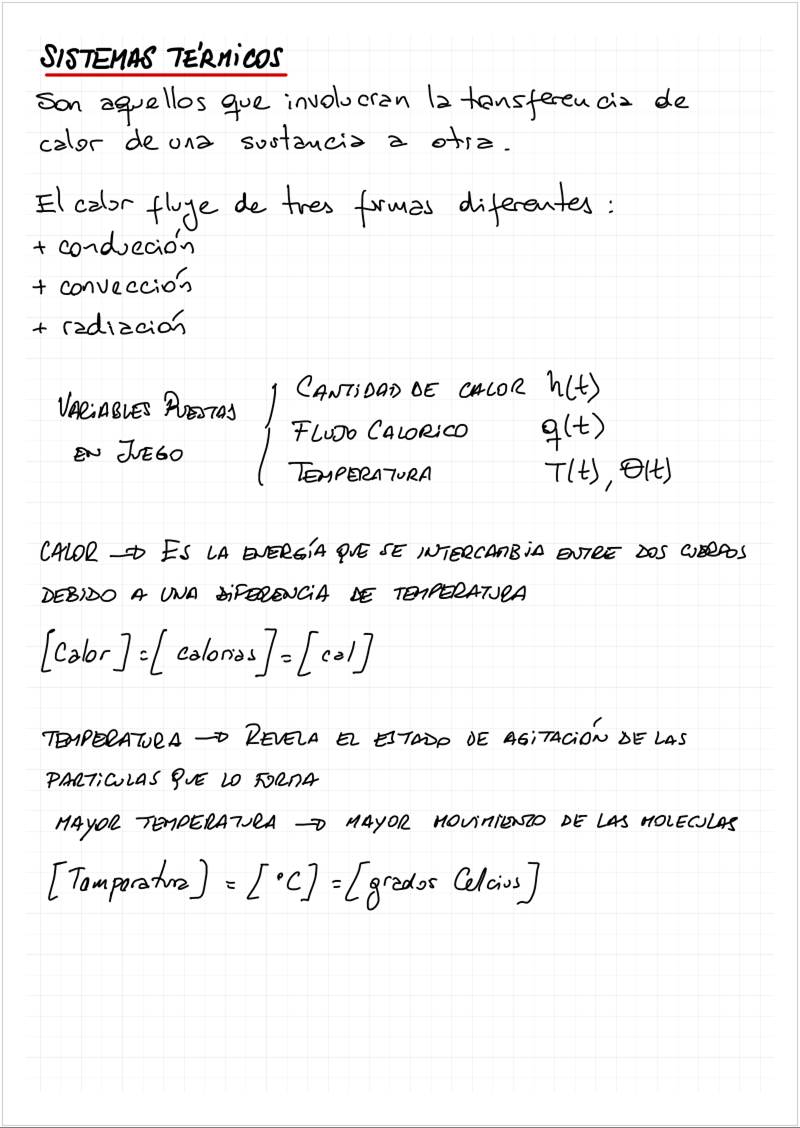 SISTEMAS TÉRMICOS
Son aquellos que involucran la transferencia de
calor de una sustancia a otra.
El calor fluye de tres formas diferentes:
+ conducción
+ convección
+ radiación
VARIABLES PUESTAS
EN JUEGO
CANTIDAD DE CALOR h(t)
FLUJO CALORICO q(t)
TEMPERATURA T(t), θ(t)
CALOR → ES LA ENERGÍA QUE SE INTERCAMBIA ENTRE DOS CUERPOS
DEBIDO A UNA DIFERENCIA DE TEMPERATURA
[Calor] = [calorias] = [cal]
TEMPERATURA → REVELA EL ESTADO DE AGITACIÓN DE LAS
PARTICULAS QUE LO FORMA
MAYOR TEMPERATURA → MAYOR MOVIMIENTO DE LAS MOLECULAS
[Temperatura] = [°C] = [grados Celcius]